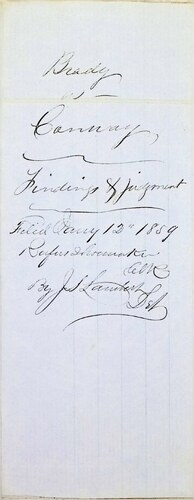 Brady
vs
Conway,
Findings & Jugment
Filed Jany 12" 1859
Rufus Shoemaker
Clk
By J S Lambert
Dpt